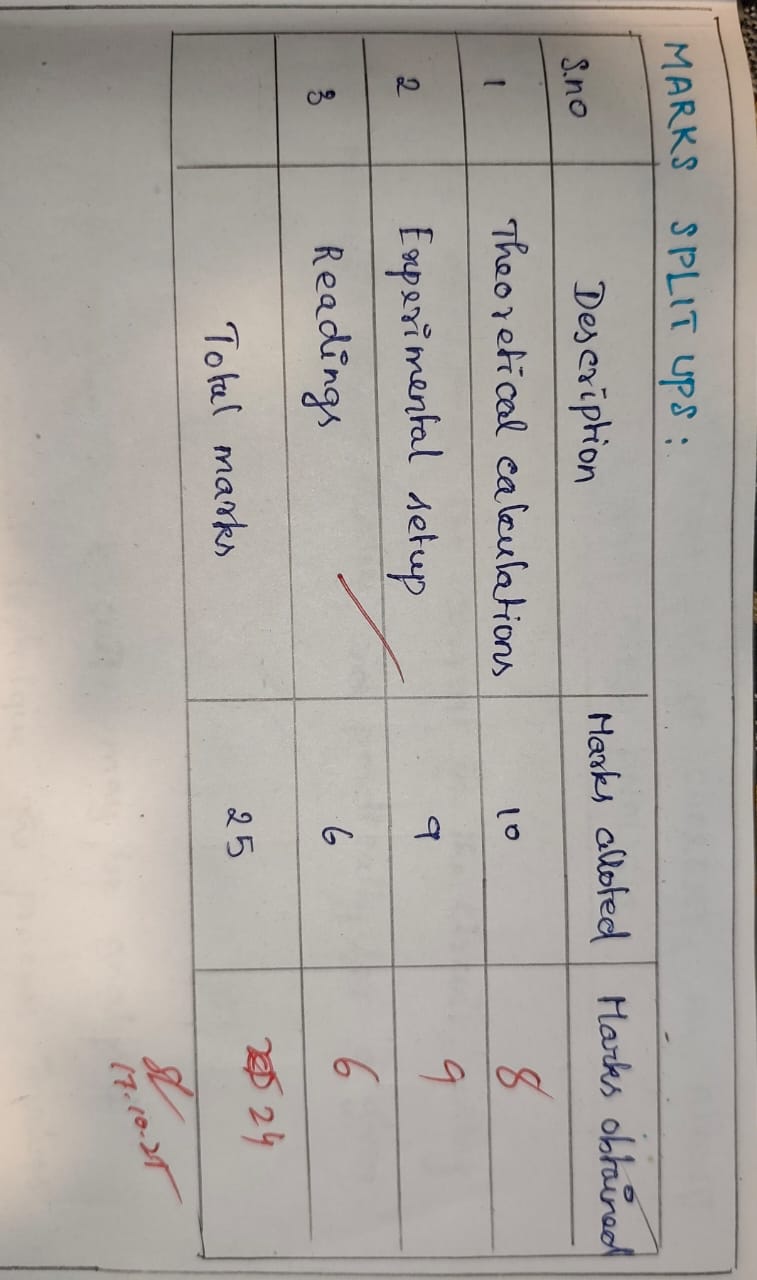 MARKS SPLIT UPS:
S.no Description Marks alloted Marks obtained
1 Theoretical calculations 10 8
2 Experimental setup 9 9
3 Readings 6 6
Total marks 25 24
17.10.25